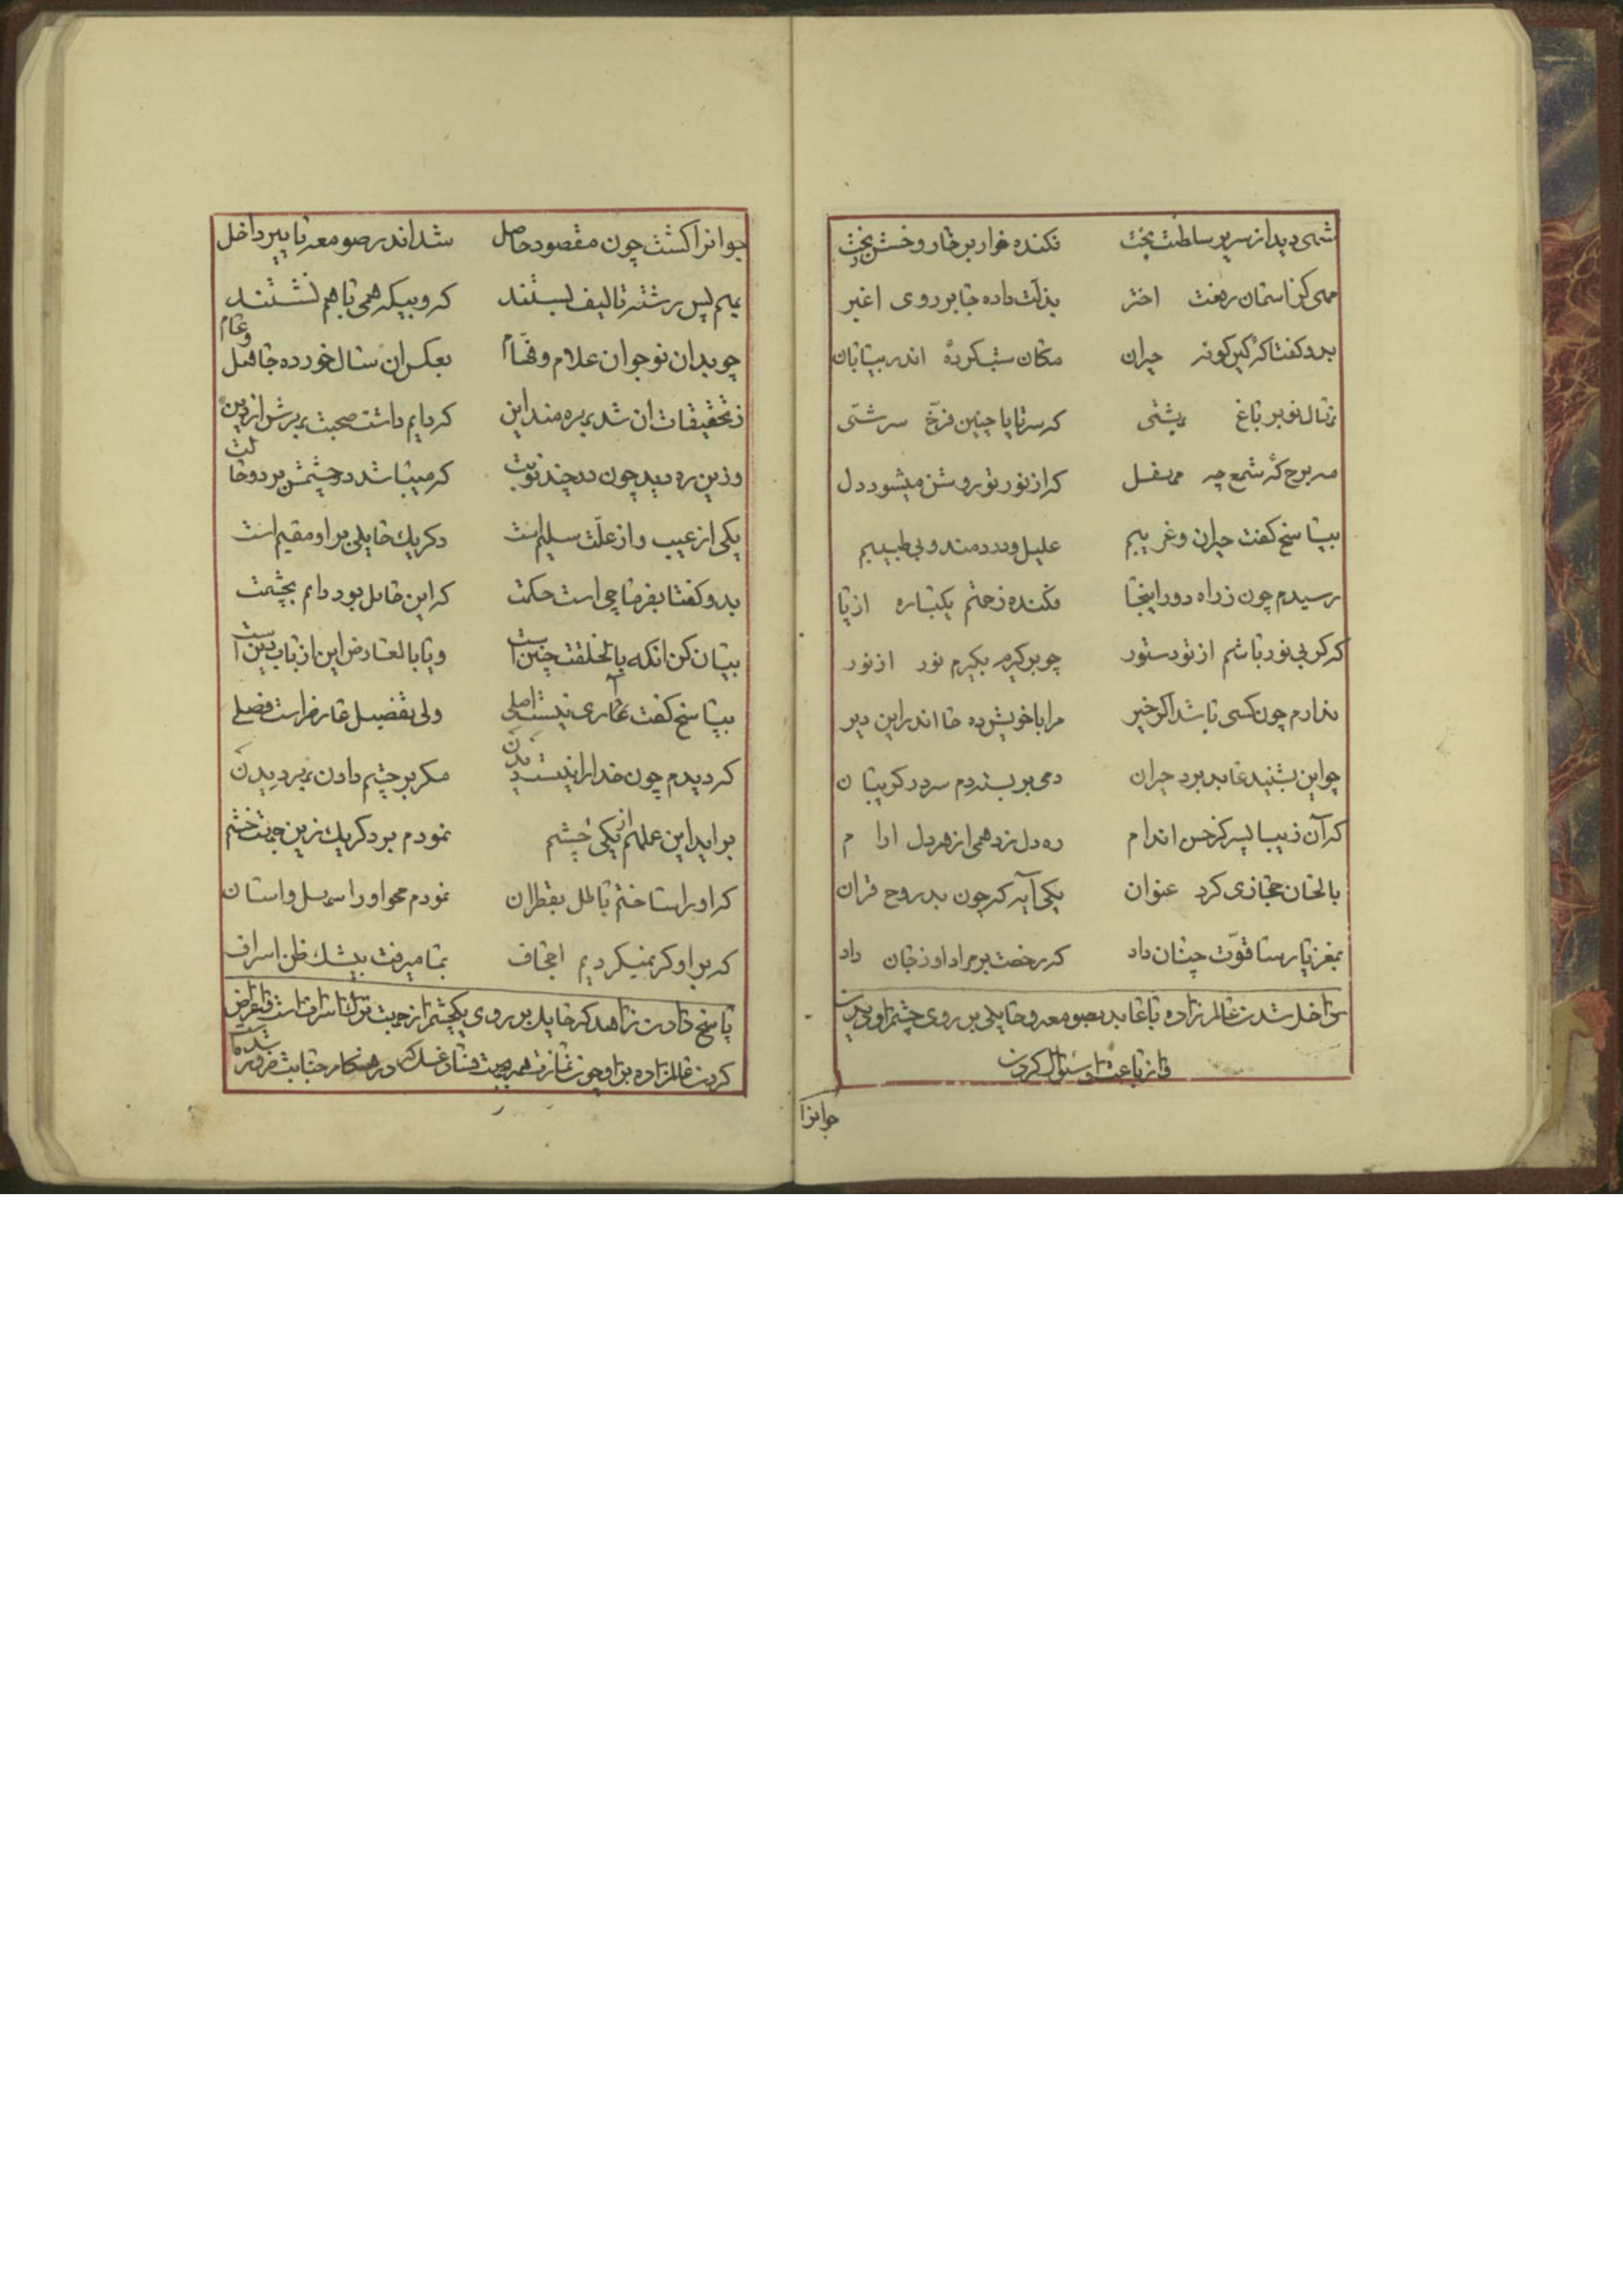 شهی دید از سریر سلطنت بخت فکنده خوار بر خار و خسش رخت
مهی کز اسمان رفعت اختر بذلت داده جا بر روی اغبر
بدو گفتا که کین کونه حیران مکان سکرده اندر بیتابان
نهال نوبر باغ بهشتی که سر تا پا چنین فرخ سرشتی
مه برج که شمع چه محفل که از نور تو روشن میشود دل
بپاسخ گفت حیران و غریبم علیل و دردمند و بی طبیبم
رسیدم چون ز راه دور اینجا فکنده زحمتم یکباره از پا
که گر بی نور باشم از تو دستور چو برگیرم بگیرم نور از نور
ندارم چون کسی باشد اگر خیر مرا با خویش ده جا اندر این دیر
چو این بشنید عابد برد حیران دمی بر بست دم سر در گریبان
که آن زیبا پسر کز حسن اندام ره دل زد همی از هر دل ارام
بالحان حجازی کرد عنوان یکی آیه که چون بد روح قران
بمغز پارسا قوت چنان داد که رخصت بر مراد او ز جان داد
داخل شدن عالم زاده با عابد بصومعه و حایلی بر روی چشم او دیدن
و از باعث او سئوال کردن
جوانرا
جوانرا گشت چون مقصود حاصل شد اندر صومعه با پیر داخل
بهم پس رشته تالیف بستند که رو بیکه همی با هم نشستند
چو بد ان نوجوان علام و فهام بعکس ان سال خورده جاهل و عام
ز تحقیقات ان شد بهره مند این که دایم داشت صحبت بهرش از دین
وزین ره دید چون در چند نوبت که میباشد دو چشمش بر دو حالت
یکی از عیب و از علت سلیم است دگر یک حایلی بر او مقیم است
بدو گفتا بفرما چی است حکمت که این حایل بود دایم بچشمت
بیان کن انکه بالخلقت چنین است و یا بالعارض این از باب دین است
بپاسخ گفت عاری نیست اصلی ولی تفضیل عارض راست فصلی
که دیدم چون خدا را نیست دیدن مگر بر چشم دادن بهر دیدن
بر اید این عملهم از یکی چشم نمودم بر دگر یک زین جهت خشم
که او را ساختم باطل بقطران نمودم محو او را سهل و اسان
که بر او گر نمیکردیم اجحاف بما میرفت بیشک ظن اسراف
پاسخ دادن زاهد که حایل بر روی یکچشم از جهت ترک اسراف است و اعتراض
کردن عالم زاده بر او چون نمازت همه بجهت فساد غسل که در هنگام جنابت ضرور شده